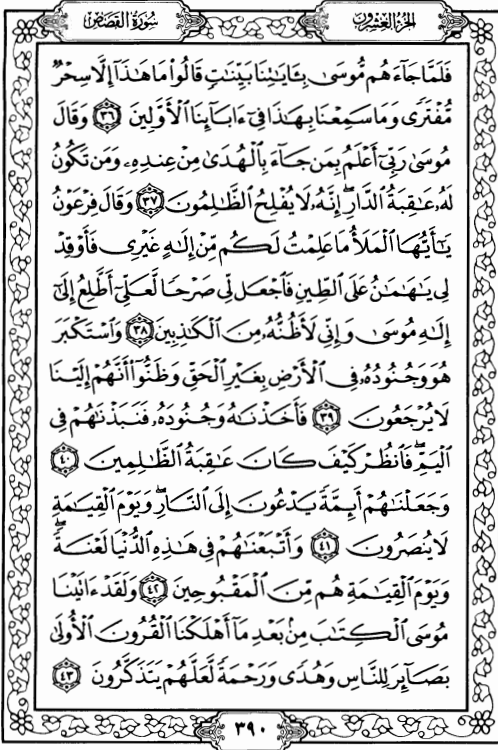 سُورَةُ القَصَصِ الجُزْءُ العِشْرُونَ
فَلَمَّا جَآءَهُم مُّوسَىٰ بِـَٔايَـٰتِنَا بَيِّنَـٰتٍ قَالُوا۟ مَا هَـٰذَآ إِلَّا سِحْرٌ
مُّفْتَرًى وَمَا سَمِعْنَا بِهَـٰذَا فِىٓ ءَابَآئِنَا ٱلْأَوَّلِينَ ٣٦ وَقَالَ
مُوسَىٰ رَبِّىٓ أَعْلَمُ بِمَن جَآءَ بِٱلْهُدَىٰ مِنْ عِندِهِۦ وَمَن تَكُونُ
لَهُۥ عَـٰقِبَةُ ٱلدَّارِ ۖ إِنَّهُۥ لَا يُفْلِحُ ٱلظَّـٰلِمُونَ ٣٧ وَقَالَ فِرْعَوْنُ
يَـٰٓأَيُّهَا ٱلْمَلَأُ مَا عَلِمْتُ لَكُم مِّنْ إِلَـٰهٍ غَيْرِى فَأَوْقِدْ
لِى يَـٰهَـٰمَـٰنُ عَلَى ٱلطِّينِ فَٱجْعَل لِّى صَرْحًا لَّعَلِّىٓ أَطَّلِعُ إِلَىٰٓ
إِلَـٰهِ مُوسَىٰ وَإِنِّى لَأَظُنُّهُۥ مِنَ ٱلْكَـٰذِبِينَ ٣٨ وَٱسْتَكْبَرَ
هُوَ وَجُنُودُهُۥ فِى ٱلْأَرْضِ بِغَيْرِ ٱلْحَقِّ وَظَنُّوٓا۟ أَنَّهُمْ إِلَيْنَا
لَا يُرْجَعُونَ ٣٩ فَأَخَذْنَـٰهُ وَجُنُودَهُۥ فَنَبَذْنَـٰهُمْ فِى
ٱلْيَمِّ ۖ فَٱنظُرْ كَيْفَ كَانَ عَـٰقِبَةُ ٱلظَّـٰلِمِينَ ٤٠
وَجَعَلْنَـٰهُمْ أَئِمَّةً يَدْعُونَ إِلَى ٱلنَّارِ ۖ وَيَوْمَ ٱلْقِيَـٰمَةِ
لَا يُنصَرُونَ ٤١ وَأَتْبَعْنَـٰهُمْ فِى هَـٰذِهِ ٱلدُّنْيَا لَعْنَةً ۖ
وَيَوْمَ ٱلْقِيَـٰمَةِ هُم مِّنَ ٱلْمَقْبُوحِينَ ٤٢ وَلَقَدْ ءَاتَيْنَا
مُوسَى ٱلْكِتَـٰبَ مِنۢ بَعْدِ مَآ أَهْلَكْنَا ٱلْقُرُونَ ٱلْأُولَىٰ
بَصَآئِرَ لِلنَّاسِ وَهُدًى وَرَحْمَةً لَّعَلَّهُمْ يَتَذَكَّرُونَ ٤٣
٣٩٠